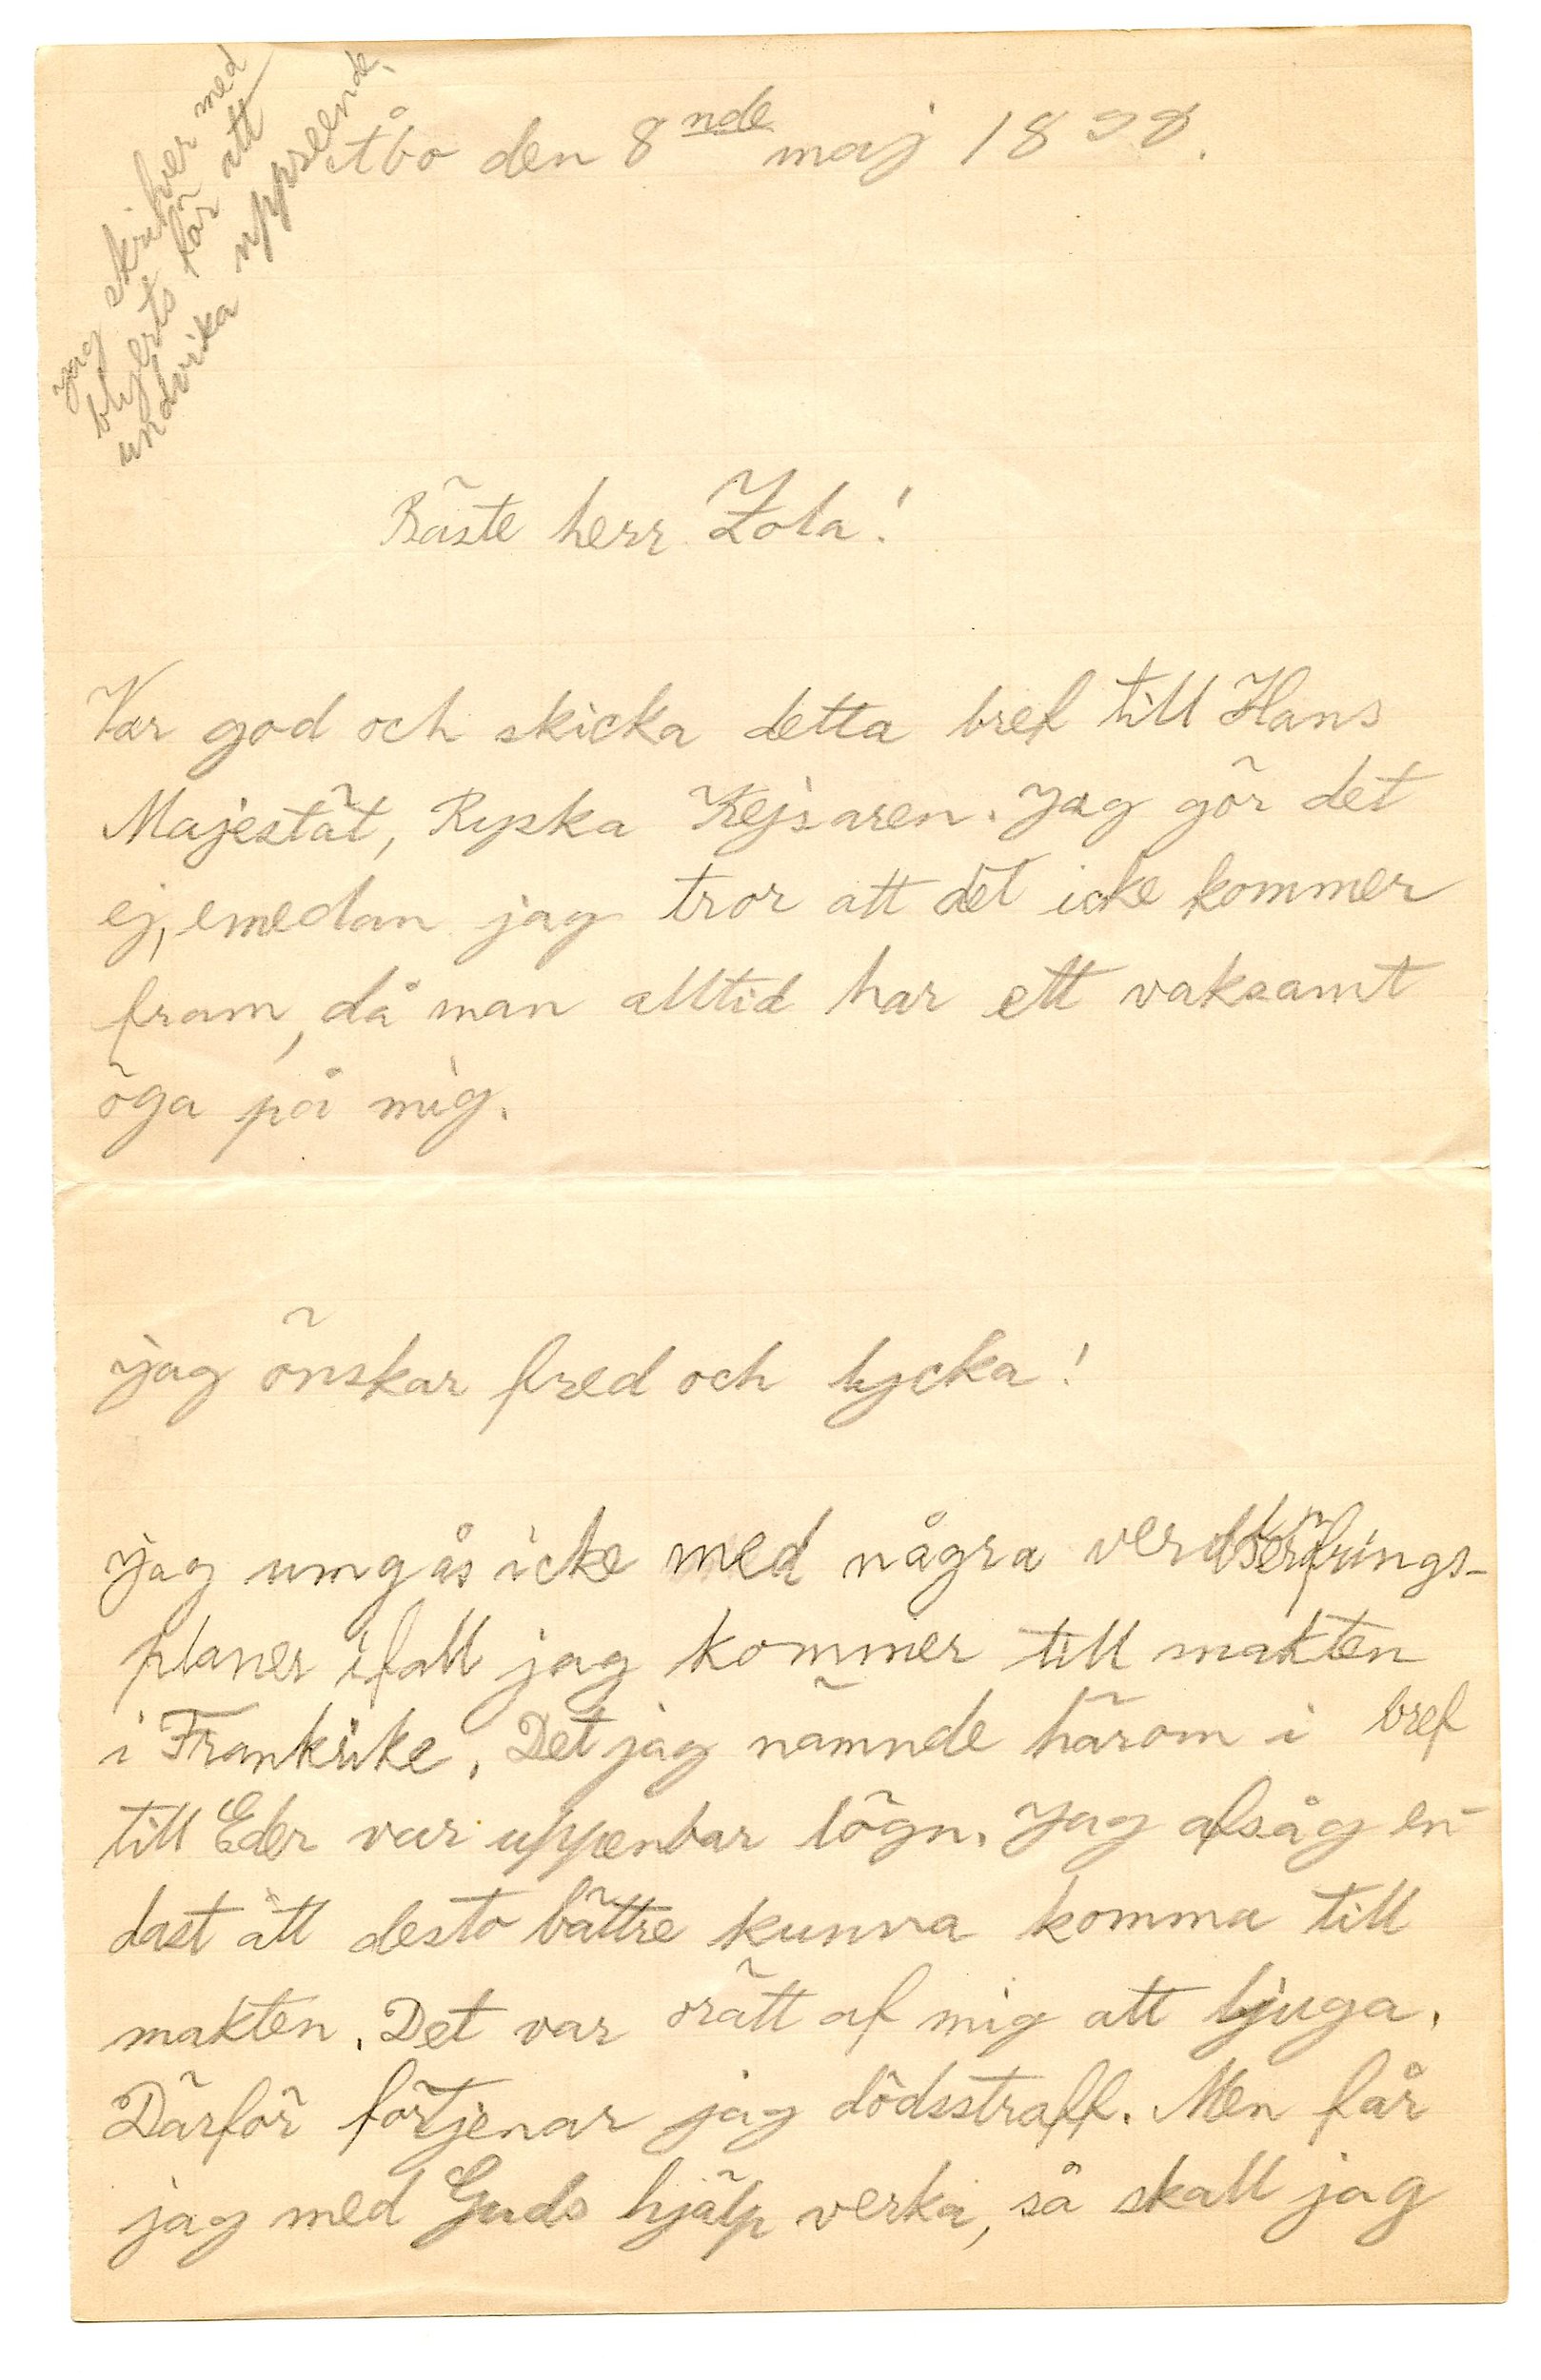 jag skrifver med
blyerts för att
undvika uppseende.
Åbo den 8nde maj 1899.
Bäste herr Zola!
Var god och skicka detta bref till Hans
Majestät, Ryska Kejsaren. Jag gör det
ej, emedan jag tror att det icke kommer
fram, då man alltid har ett vaksamt
öga på mig.
Jag önskar fred och lycka!
Jag umgås icke med några
planer ifall jag kommer till makten
i Frankrike. Det jag nämnde härom i bref
till Eder var uppenbar lögn. Jag afsåg en-
dast att desto bättre kunna komma till
makten. Det var orätt af mig att ljuga.
Därför förtjenar jag dödsstraff. Men får
jag med Guds hjälp verka, så skall jag